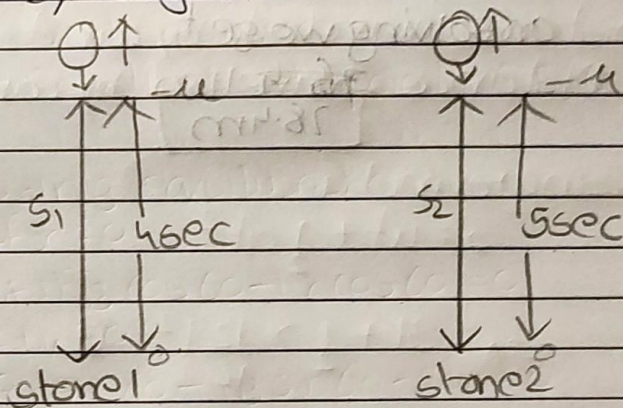 -u -u
S1 4sec S2 5sec
stone1 stone2